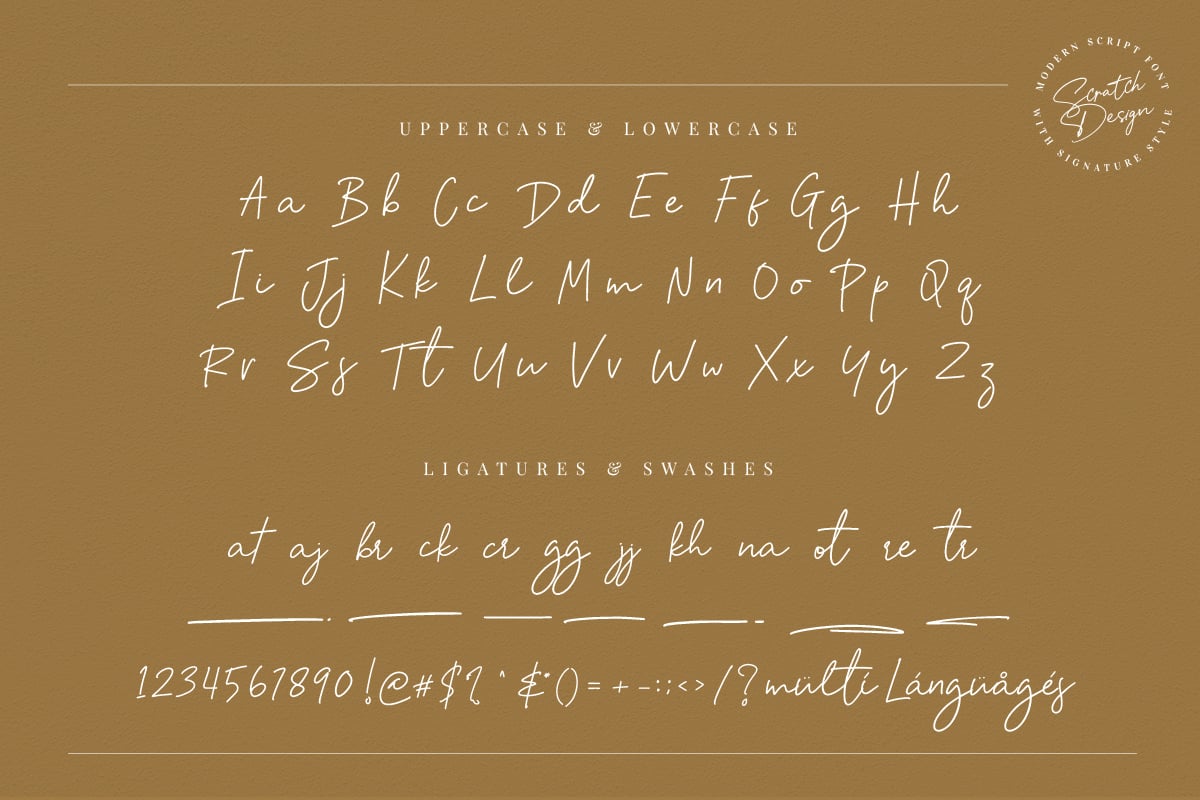 MODERN SCRIPT FONT
Scratch
Design
WITH SIGNATURE STYLE
UPPERCASE & LOWERCASE
Aa Bb Cc Dd Ee Ff Gg Hh
Ii Jj Kk Ll Mm Nn Oo Pp Qq
Rr Ss Tt Uu Vv Ww Xx Yy Zz
LIGATURES & SWASHES
at aj br ck cr gg jj kh na ot re tr
1234567890!@#$? ^ &*()= + -:;<> /? mültí Lángüågés